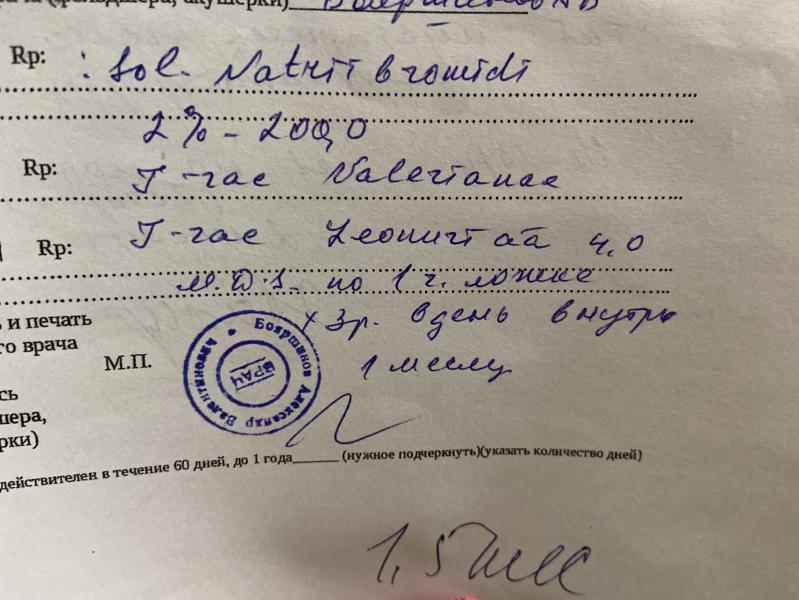 (фельдшера, акушерки)
Rp: : Sol. Natrii bromidi
2% - 200,0
Rp: T-rae Valerianae
Rp: T-rae Leonuri aa 4,0
M.D.S. по 1 ч. ложке
х 3р. в день внутрь
и печать
врача
М.П.
1 месяц
Бояршинов Александр Валентинович
ВРАЧ
действителен в течение 60 дней, до 1 года______ (нужное подчеркнуть)(указать количество дней)